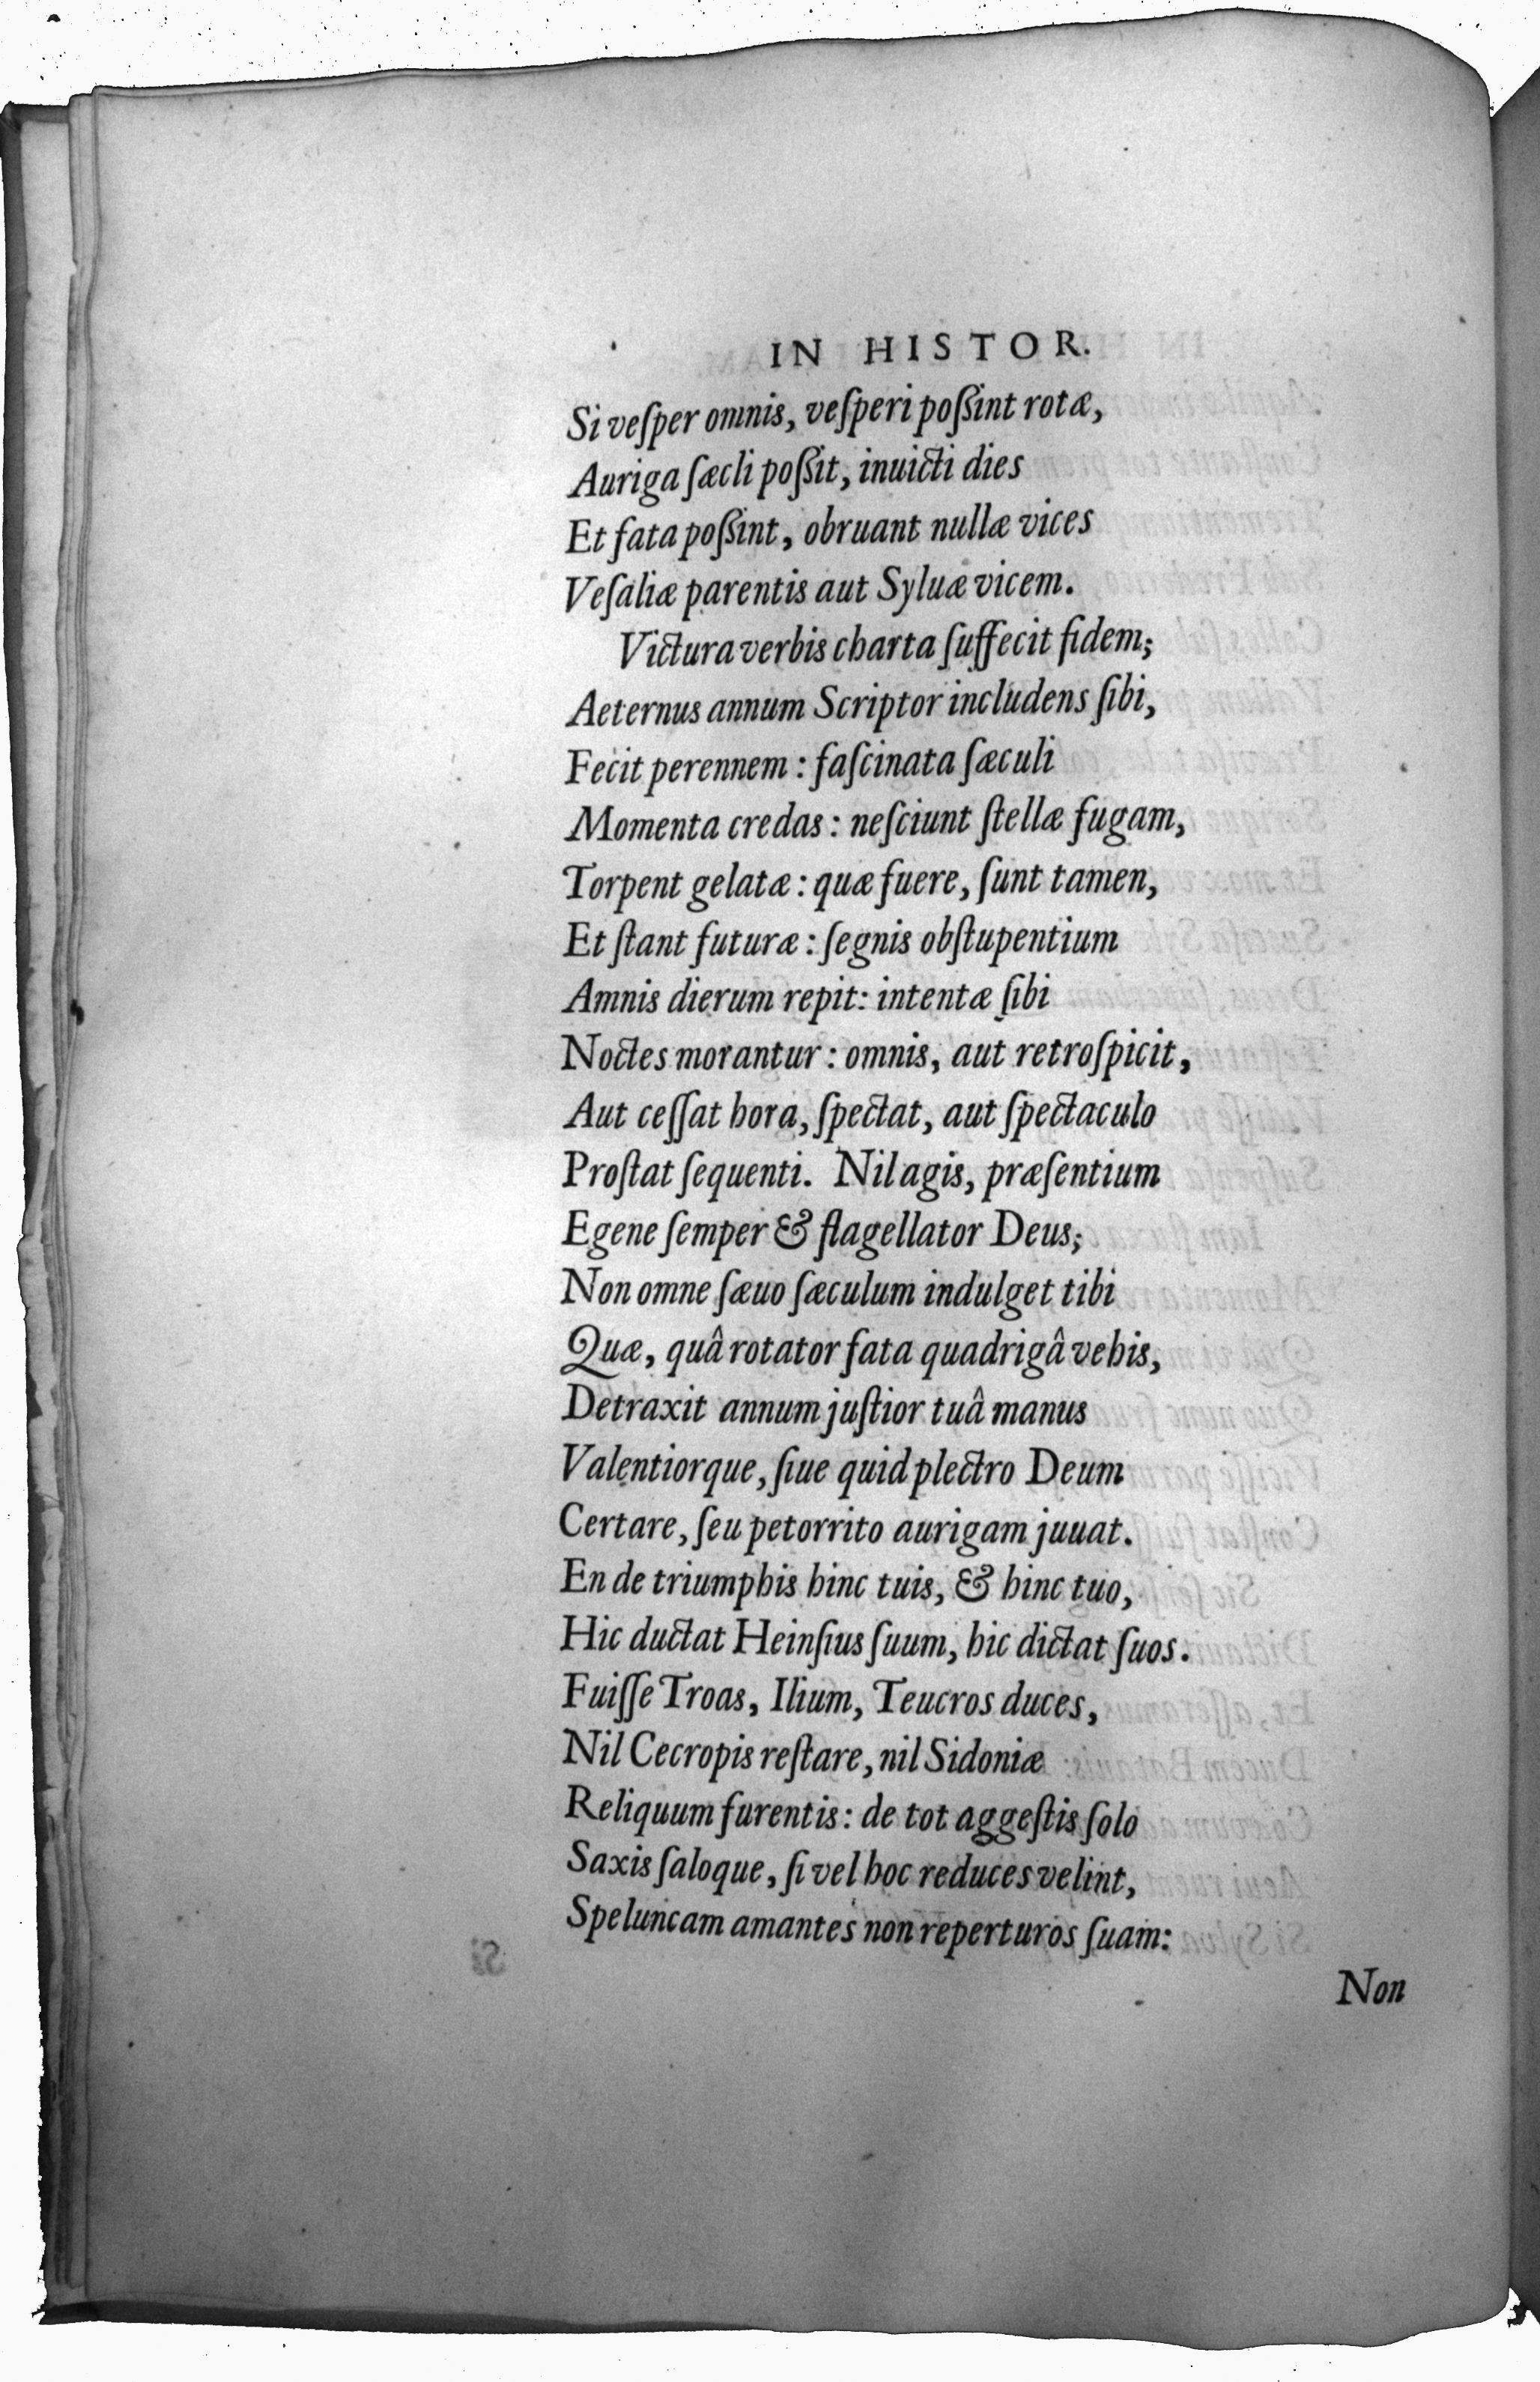 IN HISTOR.
Si veſper omnis, veſperi poßint rotæ,
Auriga ſæcli poßit, inuicti dies
Et fata poßint, obruant nullæ vices
Veſaliæ parentis aut Syluæ vicem.
Victura verbis charta ſuffecit fidem;
Aeternus annum Scriptor includens ſibi,
Fecit perennem: faſcinata ſæculi
Momenta credas: neſciunt ſtellæ fugam,
Torpent gelatæ: quæ fuere, ſunt tamen,
Et ſtant futuræ: ſegnis obſtupentium
Amnis dierum repit: intentæ ſibi
Noctes morantur: omnis, aut retroſpicit,
Aut ceſſat hora, ſpectat, aut ſpectaculo
Proſtat ſequenti. Nil agis, præſentium
Egene ſemper & flagellator Deus;
Non omne ſæuo ſæculum indulget tibi
Quæ, quâ rotator fata quadrigâ vehis,
Detraxit annum juſtior tuâ manus
Valentiorque, ſiue quid plectro Deum
Certare, ſeu petorrito aurigam juuat.
En de triumphis hinc tuis, & hinc tuo,
Hic ductat Heinſius ſuum, hic dictat ſuos.
Fuiſſe Troas, Ilium, Teucros duces,
Nil Cecropis reſtare, nil Sidoniæ
Reliquum furentis: de tot aggeſtis ſolo
Saxis ſaloque, ſi vel hoc reduces velint,
Speluncam amantes non reperturos ſuam:
Non